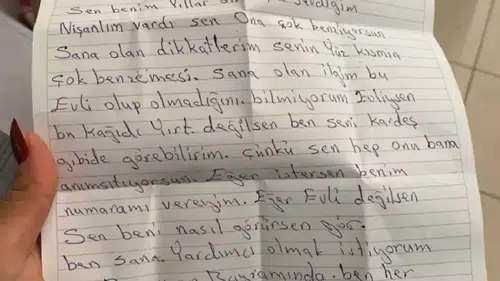 Sen benim Yıllar
Nişanlım vardı sen Ona çok benziyorsun
Sana olan dikkatlerim senin Yüz kısmın
çok benzemesi. Sana olan ilgim bu
Evli olup olmadığını. bilmiyorum Evliysen
bu kağıdı Yırt. değilsen ben seni kardeş
gibide görebilirim. Çünkü sen hep onu bana
anımsıtıyorsun. Eğer istersen benim
numaramı vereyim. Eğer Evli değilsen
Sen beni nasıl görürsen gör.
ben sana Yardımcı olmak istiyorum
Bayramında. ben her